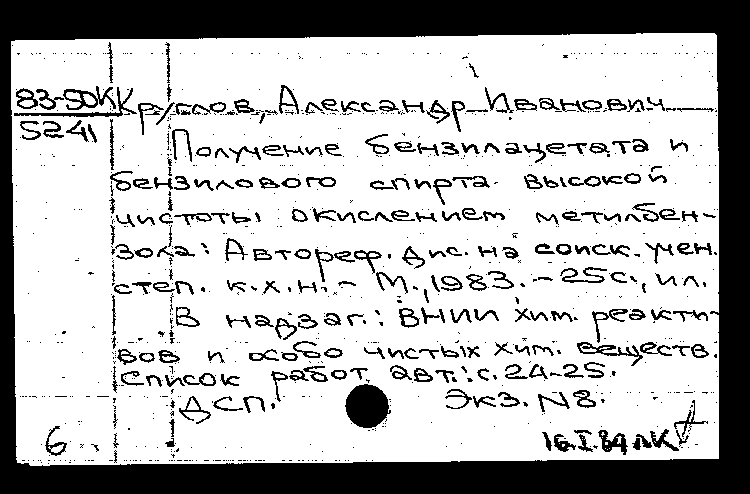 83-50К Круглов, Александр Иванович
5241
Получение бензилацетата и
бензилового спирта высокой
чистоты окислением метилбен-
зола: Автореф. дис. на соиск. учен.
степ. к.х.н. - М., 1983. - 25с., ил.
В надзаг.: ВНИИ хим. реакти-
вов и особо чистых хим. веществ.
Список работ авт.: с. 24-25.
ДСП. Экз. N8.
6 16.I.84 ЛК